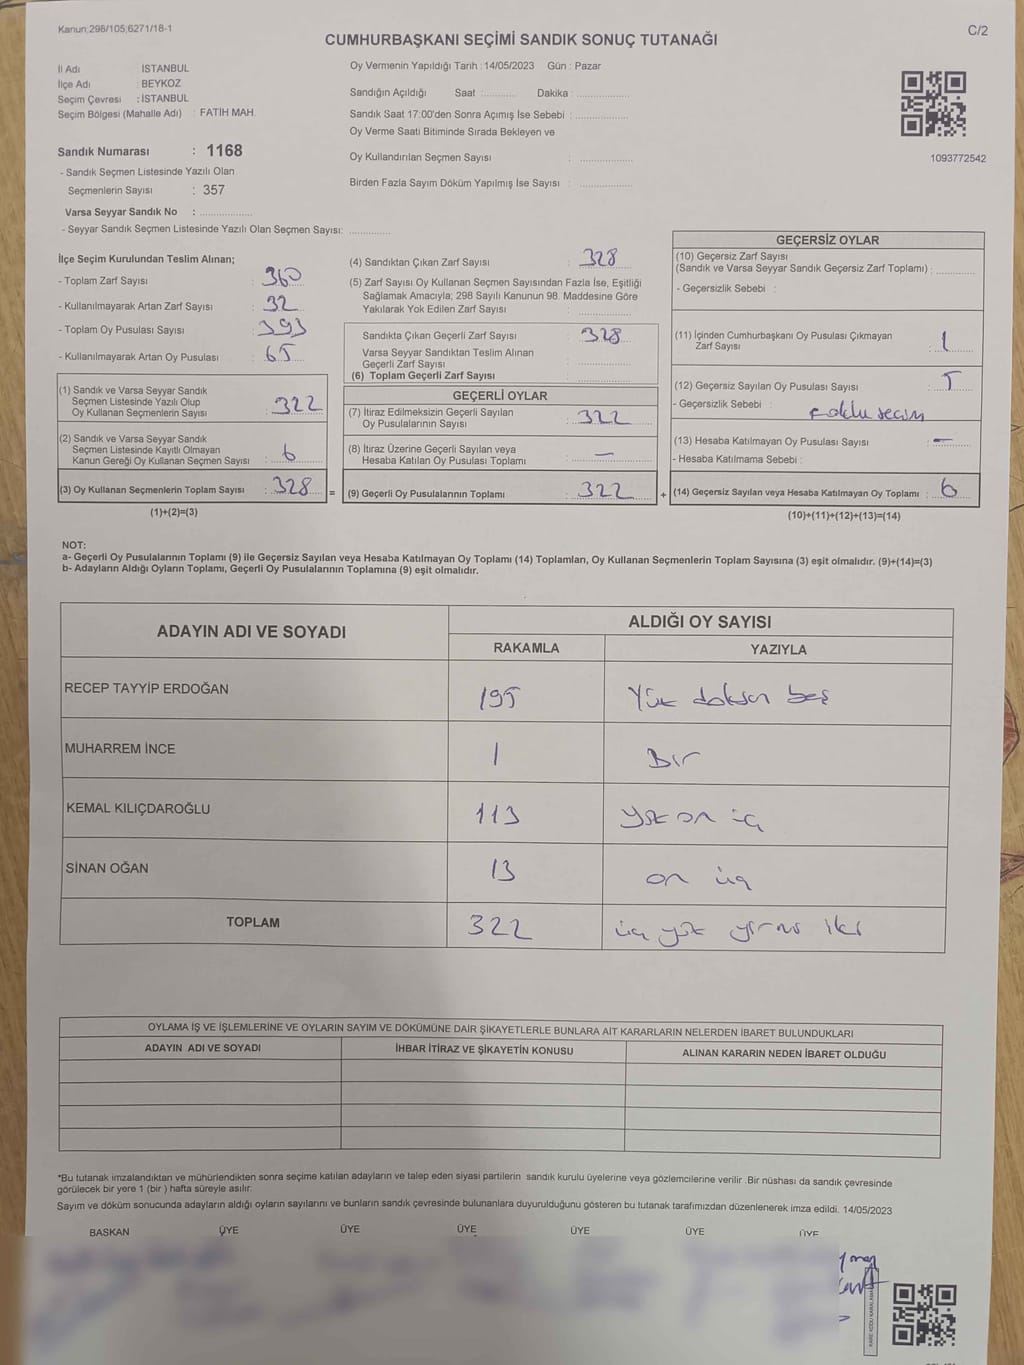 Kanun;298/105;6271/18-1
C/2
CUMHURBAŞKANI SEÇİMİ SANDIK SONUÇ TUTANAĞI
İl Adı : İSTANBUL
İlçe Adı : BEYKOZ
Seçim Çevresi : İSTANBUL
Seçim Bölgesi (Mahalle Adı) : FATİH MAH.
Sandık Numarası : 1168
- Sandık Seçmen Listesinde Yazılı Olan
Seçmenlerin Sayısı : 357
Varsa Seyyar Sandık No : ..................
- Seyyar Sandık Seçmen Listesinde Yazılı Olan Seçmen Sayısı: ..............
Oy Vermenin Yapıldığı Tarih : 14/05/2023 Gün : Pazar
Sandığın Açıldığı Saat :............ Dakika : ..................
Sandık Saat 17:00'den Sonra Açımış İse Sebebi : ..................
Oy Verme Saati Bitiminde Sırada Bekleyen ve
Oy Kullandırılan Seçmen Sayısı : ..................
Birden Fazla Sayım Döküm Yapılmış İse Sayısı : ..................
1093772542
İlçe Seçim Kurulundan Teslim Alınan;
- Toplam Zarf Sayısı : 360
- Kullanılmayarak Artan Zarf Sayısı : 32
- Toplam Oy Pusulası Sayısı : 393
- Kullanılmayarak Artan Oy Pusulası : 65
(1) Sandık ve Varsa Seyyar Sandık
Seçmen Listesinde Yazılı Olup
Oy Kullanan Seçmenlerin Sayısı : 322
(2) Sandık ve Varsa Seyyar Sandık
Seçmen Listesinde Kayıtlı Olmayan
Kanun Gereği Oy Kullanan Seçmen Sayısı : 6
(3) Oy Kullanan Seçmenlerin Toplam Sayısı : 328 =
(1)+(2)=(3)
(4) Sandıktan Çıkan Zarf Sayısı : 328
(5) Zarf Sayısı Oy Kullanan Seçmen Sayısından Fazla İse, Eşitliği
Sağlamak Amacıyla; 298 Sayılı Kanunun 98. Maddesine Göre
Yakılarak Yok Edilen Zarf Sayısı : ..................
Sandıkta Çıkan Geçerli Zarf Sayısı : 328
Varsa Seyyar Sandıktan Teslim Alınan
Geçerli Zarf Sayısı : ..................
(6) Toplam Geçerli Zarf Sayısı : ..................
GEÇERLİ OYLAR
(7) İtiraz Edilmeksizin Geçerli Sayılan
Oy Pusulalarının Sayısı : 322
(8) İtiraz Üzerine Geçerli Sayılan veya
Hesaba Katılan Oy Pusulası Toplamı : —
(9) Geçerli Oy Pusulalarının Toplamı : 322 +
GEÇERSİZ OYLAR
(10) Geçersiz Zarf Sayısı
(Sandık ve Varsa Seyyar Sandık Geçersiz Zarf Toplamı) : ..............
- Geçersizlik Sebebi :
(11) İçinden Cumhurbaşkanı Oy Pusulası Çıkmayan
Zarf Sayısı : 1
(12) Geçersiz Sayılan Oy Pusulası Sayısı : 5
- Geçersizlik Sebebi :
(13) Hesaba Katılmayan Oy Pusulası Sayısı : —
- Hesaba Katılmama Sebebi :
(14) Geçersiz Sayılan veya Hesaba Katılmayan Oy Toplamı : 6
(10)+(11)+(12)+(13)=(14)
NOT:
a- Geçerli Oy Pusulalarının Toplamı (9) ile Geçersiz Sayılan veya Hesaba Katılmayan Oy Toplamı (14) Toplamları, Oy Kullanan Seçmenlerin Toplam Sayısına (3) eşit olmalıdır. (9)+(14)=(3)
b- Adayların Aldığı Oyların Toplamı, Geçerli Oy Pusulalarının Toplamına (9) eşit olmalıdır.
ADAYIN ADI VE SOYADI ALDIĞI OY SAYISI
RAKAMLA YAZIYLA
RECEP TAYYİP ERDOĞAN 195 Yüz doksan beş
MUHARREM İNCE 1 Bir
KEMAL KILIÇDAROĞLU 113 yüz on üç
SİNAN OĞAN 13 on üç
TOPLAM 322 üç yüz yirmi iki
OYLAMA İŞ VE İŞLEMLERİNE VE OYLARIN SAYIM VE DÖKÜMÜNE DAİR ŞİKAYETLERLE BUNLARA AİT KARARLARIN NELERDEN İBARET BULUNDUKLARI
ADAYIN ADI VE SOYADI İHBAR İTİRAZ VE ŞİKAYETİN KONUSU ALINAN KARARIN NEDEN İBARET OLDUĞU
*Bu tutanak imzalandıktan ve mühürlendikten sonra seçime katılan adayların ve talep eden siyasi partilerin sandık kurulu üyelerine veya gözlemcilerine verilir .Bir nüshası da sandık çevresinde
görülecek bir yere 1 (bir ) hafta süreyle asılır.
Sayım ve döküm sonucunda adayların aldığı oyların sayılarını ve bunların sandık çevresinde bulunanlara duyurulduğunu gösteren bu tutanak tarafımızdan düzenlenerek imza edildi. 14/05/2023
BASKAN ÜYE ÜYE ÜYE ÜYE ÜYE ÜYE